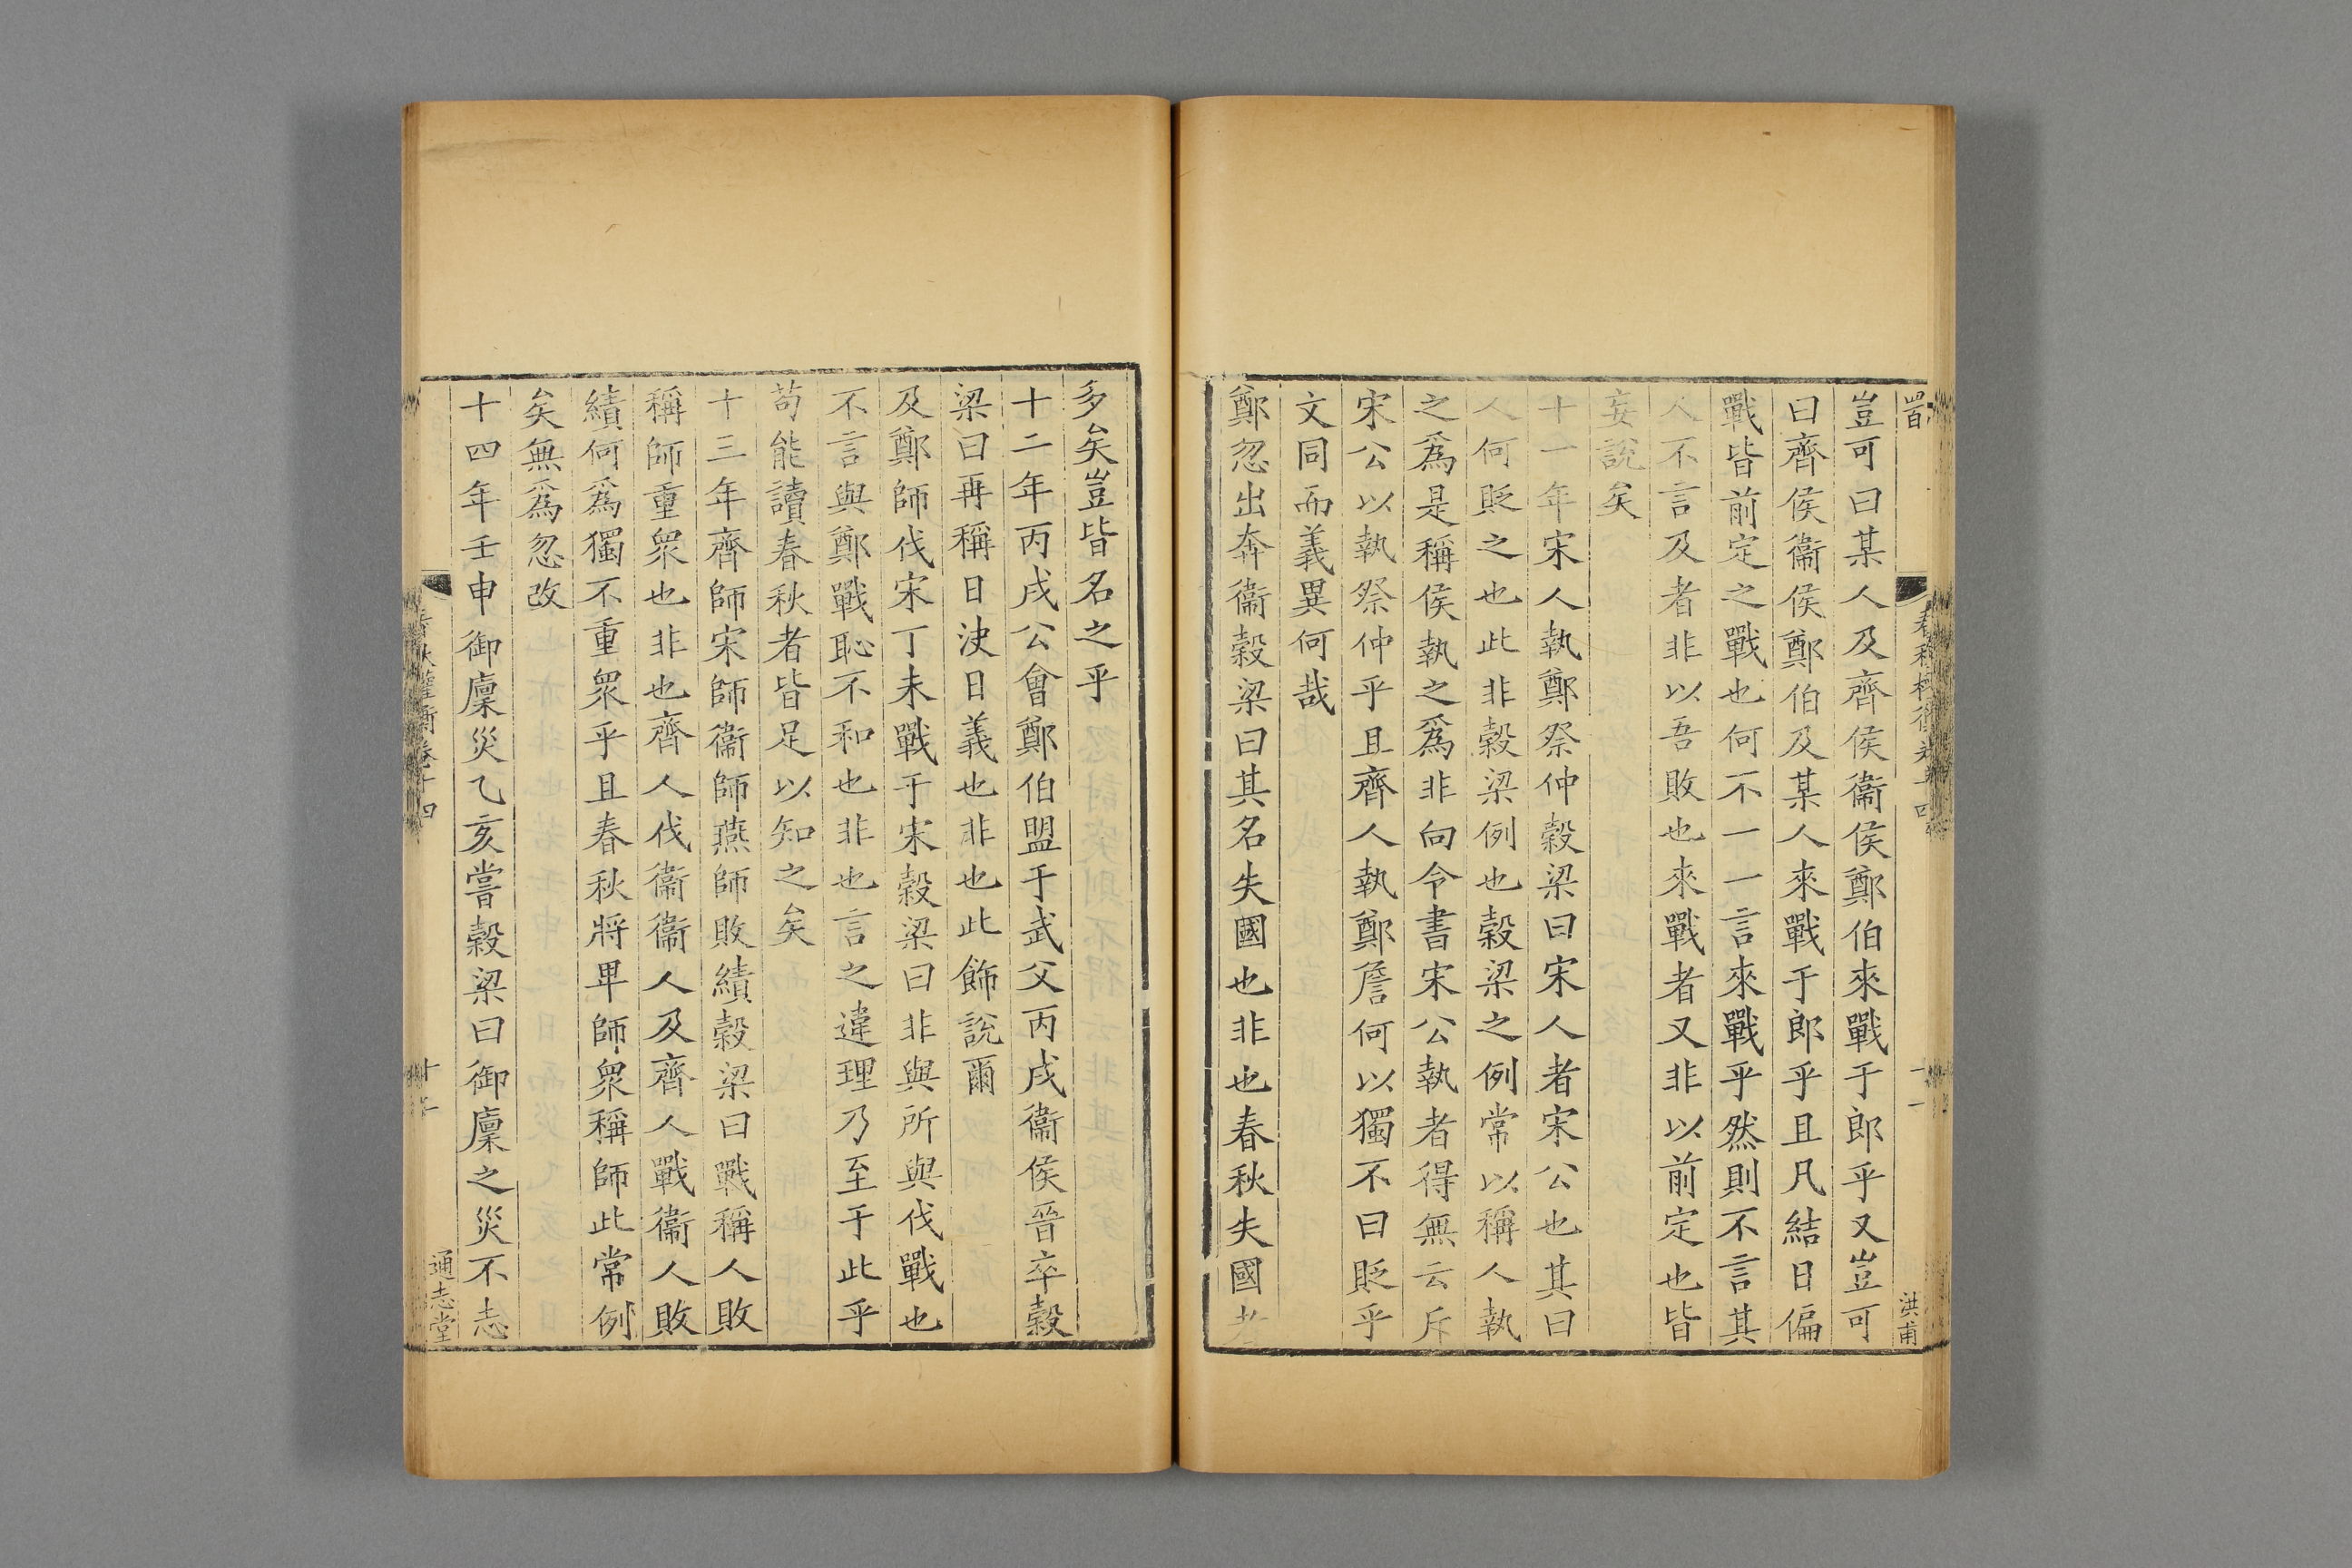 豈可曰某人及齊侯衞侯鄭伯來戰于郎乎又豈可
曰齊侯衞侯鄭伯及某人來戰于郎乎且凡結日偏
戰皆前定之戰也何不一一言來戰乎然則不言其
人不言及者非以吾敗也來戰者又非以前定也皆
妄說矣
十一年宋人執鄭祭仲穀梁曰宋人者宋公也其曰
人何貶之也此非穀梁例也穀梁之例常以稱人執
之爲是稱侯執之爲非向令書宋公執者得無云斥
宋公以執祭仲乎且齊人執鄭詹何以獨不曰貶乎
文同而義異何哉
鄭忽出奔衞穀梁曰其名失國也非也春秋失國者
洪甫
多矣豈皆名之乎
十二年丙戌公會鄭伯盟于武父丙戌衞侯晉卒穀
梁曰再稱日決日義也非也此飾說爾
及鄭師伐宋丁未戰于宋穀梁曰非與所與伐戰也
不言與鄭戰恥不和也非也言之違理乃至于此乎
苟能讀春秋者皆足以知之矣
十三年齊師宋師衞師燕師敗績穀梁曰戰稱人敗
稱師重衆也非也齊人伐衞衞人及齊人戰衞人敗
績何爲獨不重衆乎且春秋將卑師衆稱師此常例
矣無爲忽改
十四年壬申御廩災乙亥嘗穀梁曰御廩之災不志
春秋權衡卷十四
通志堂